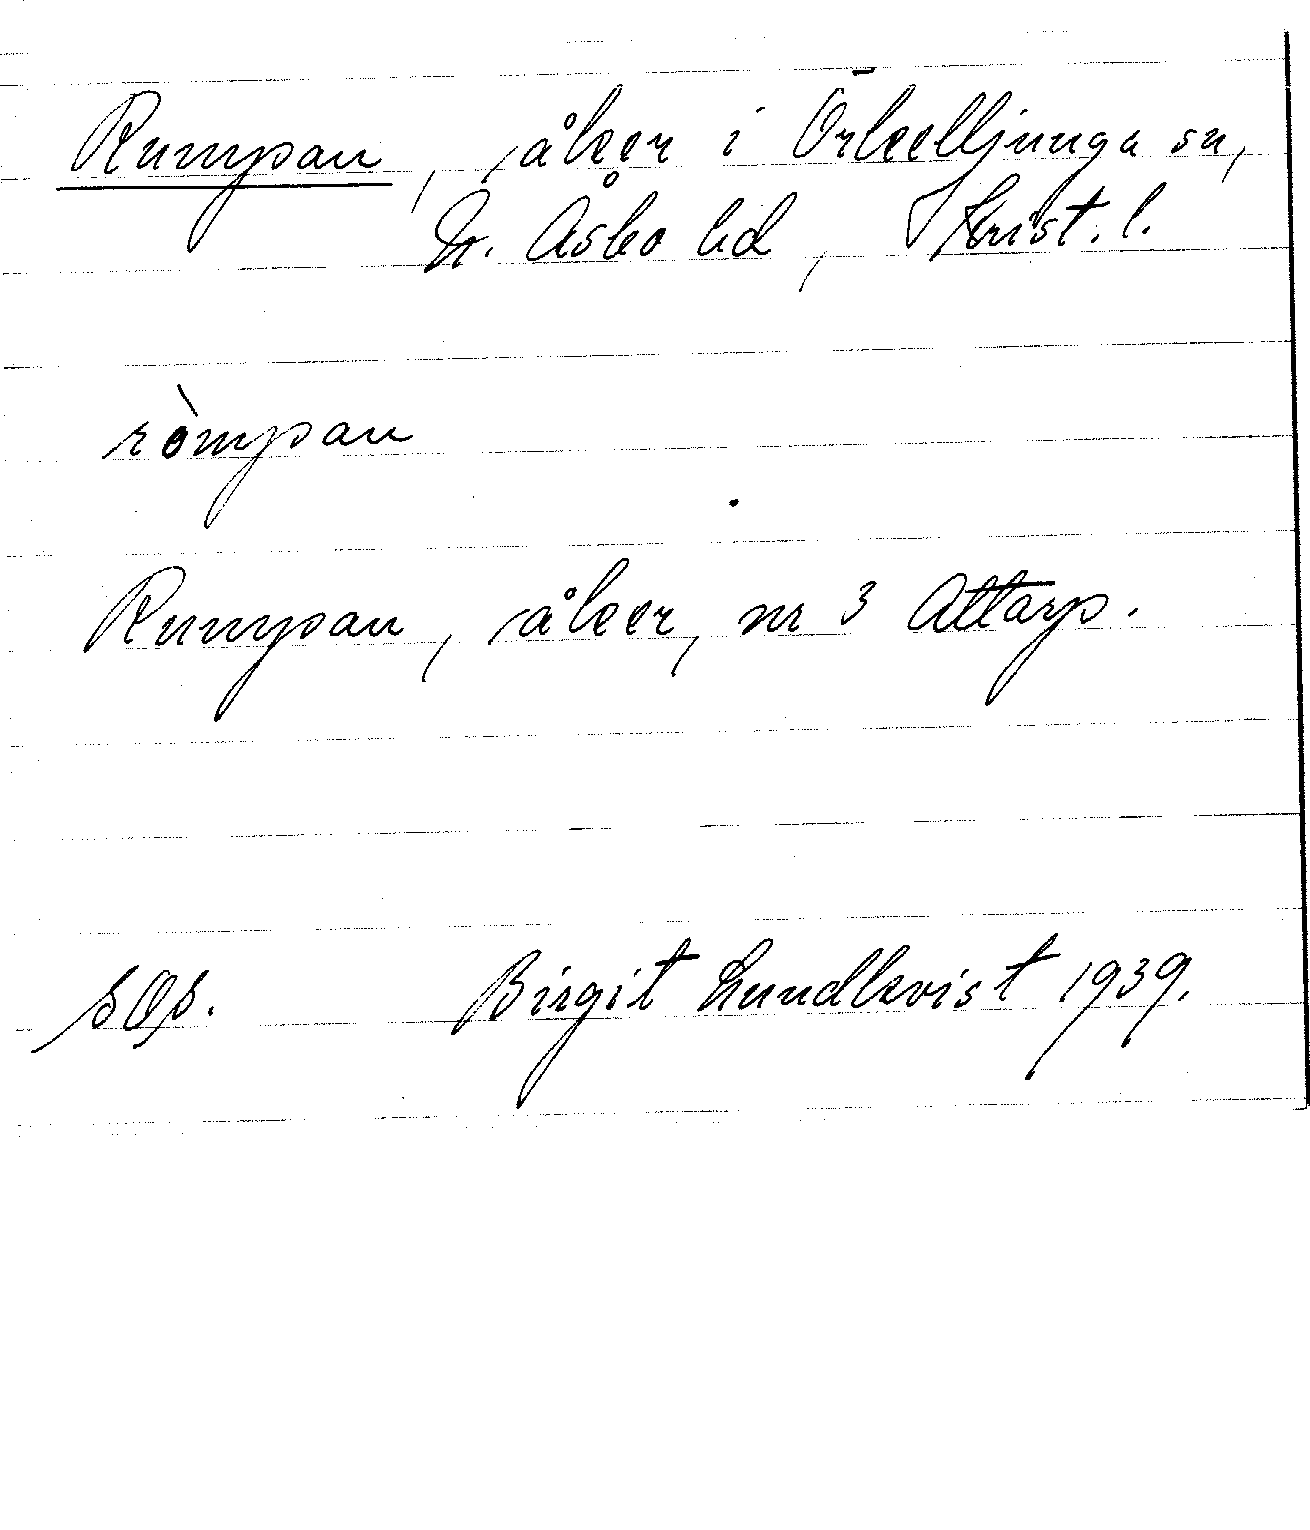 Rumpan, åker i Örkelljunga sn,
N. Åsbo hd, Krist. l.
ròmpan
Rumpan, åker, nr 3 Attarp.
Birgit Lundkvist 1939.